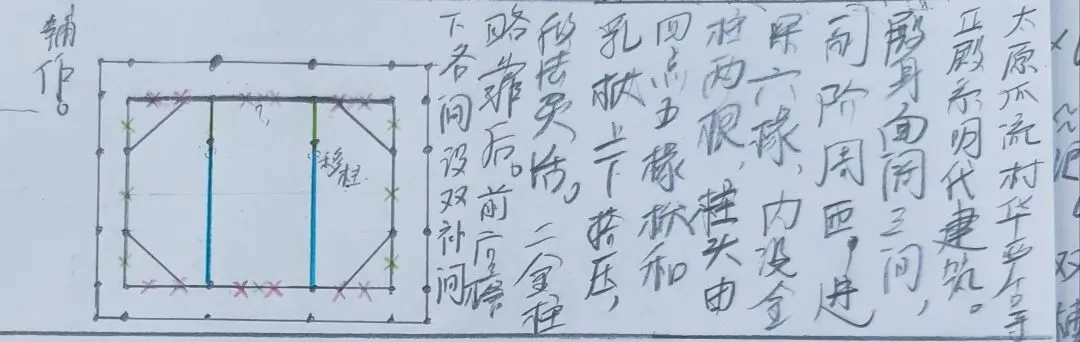 太原瓜流村华严寺
正殿示明代建筑。
殿身面阔三间，
副阶周匝，进
深六椽、内设金
柱两根，柱头由
四点五椽栿和
乳栿上下搭压，
做法灵活。二金柱
略靠后。前后檐
下各间设双补间
辅作。
移柱